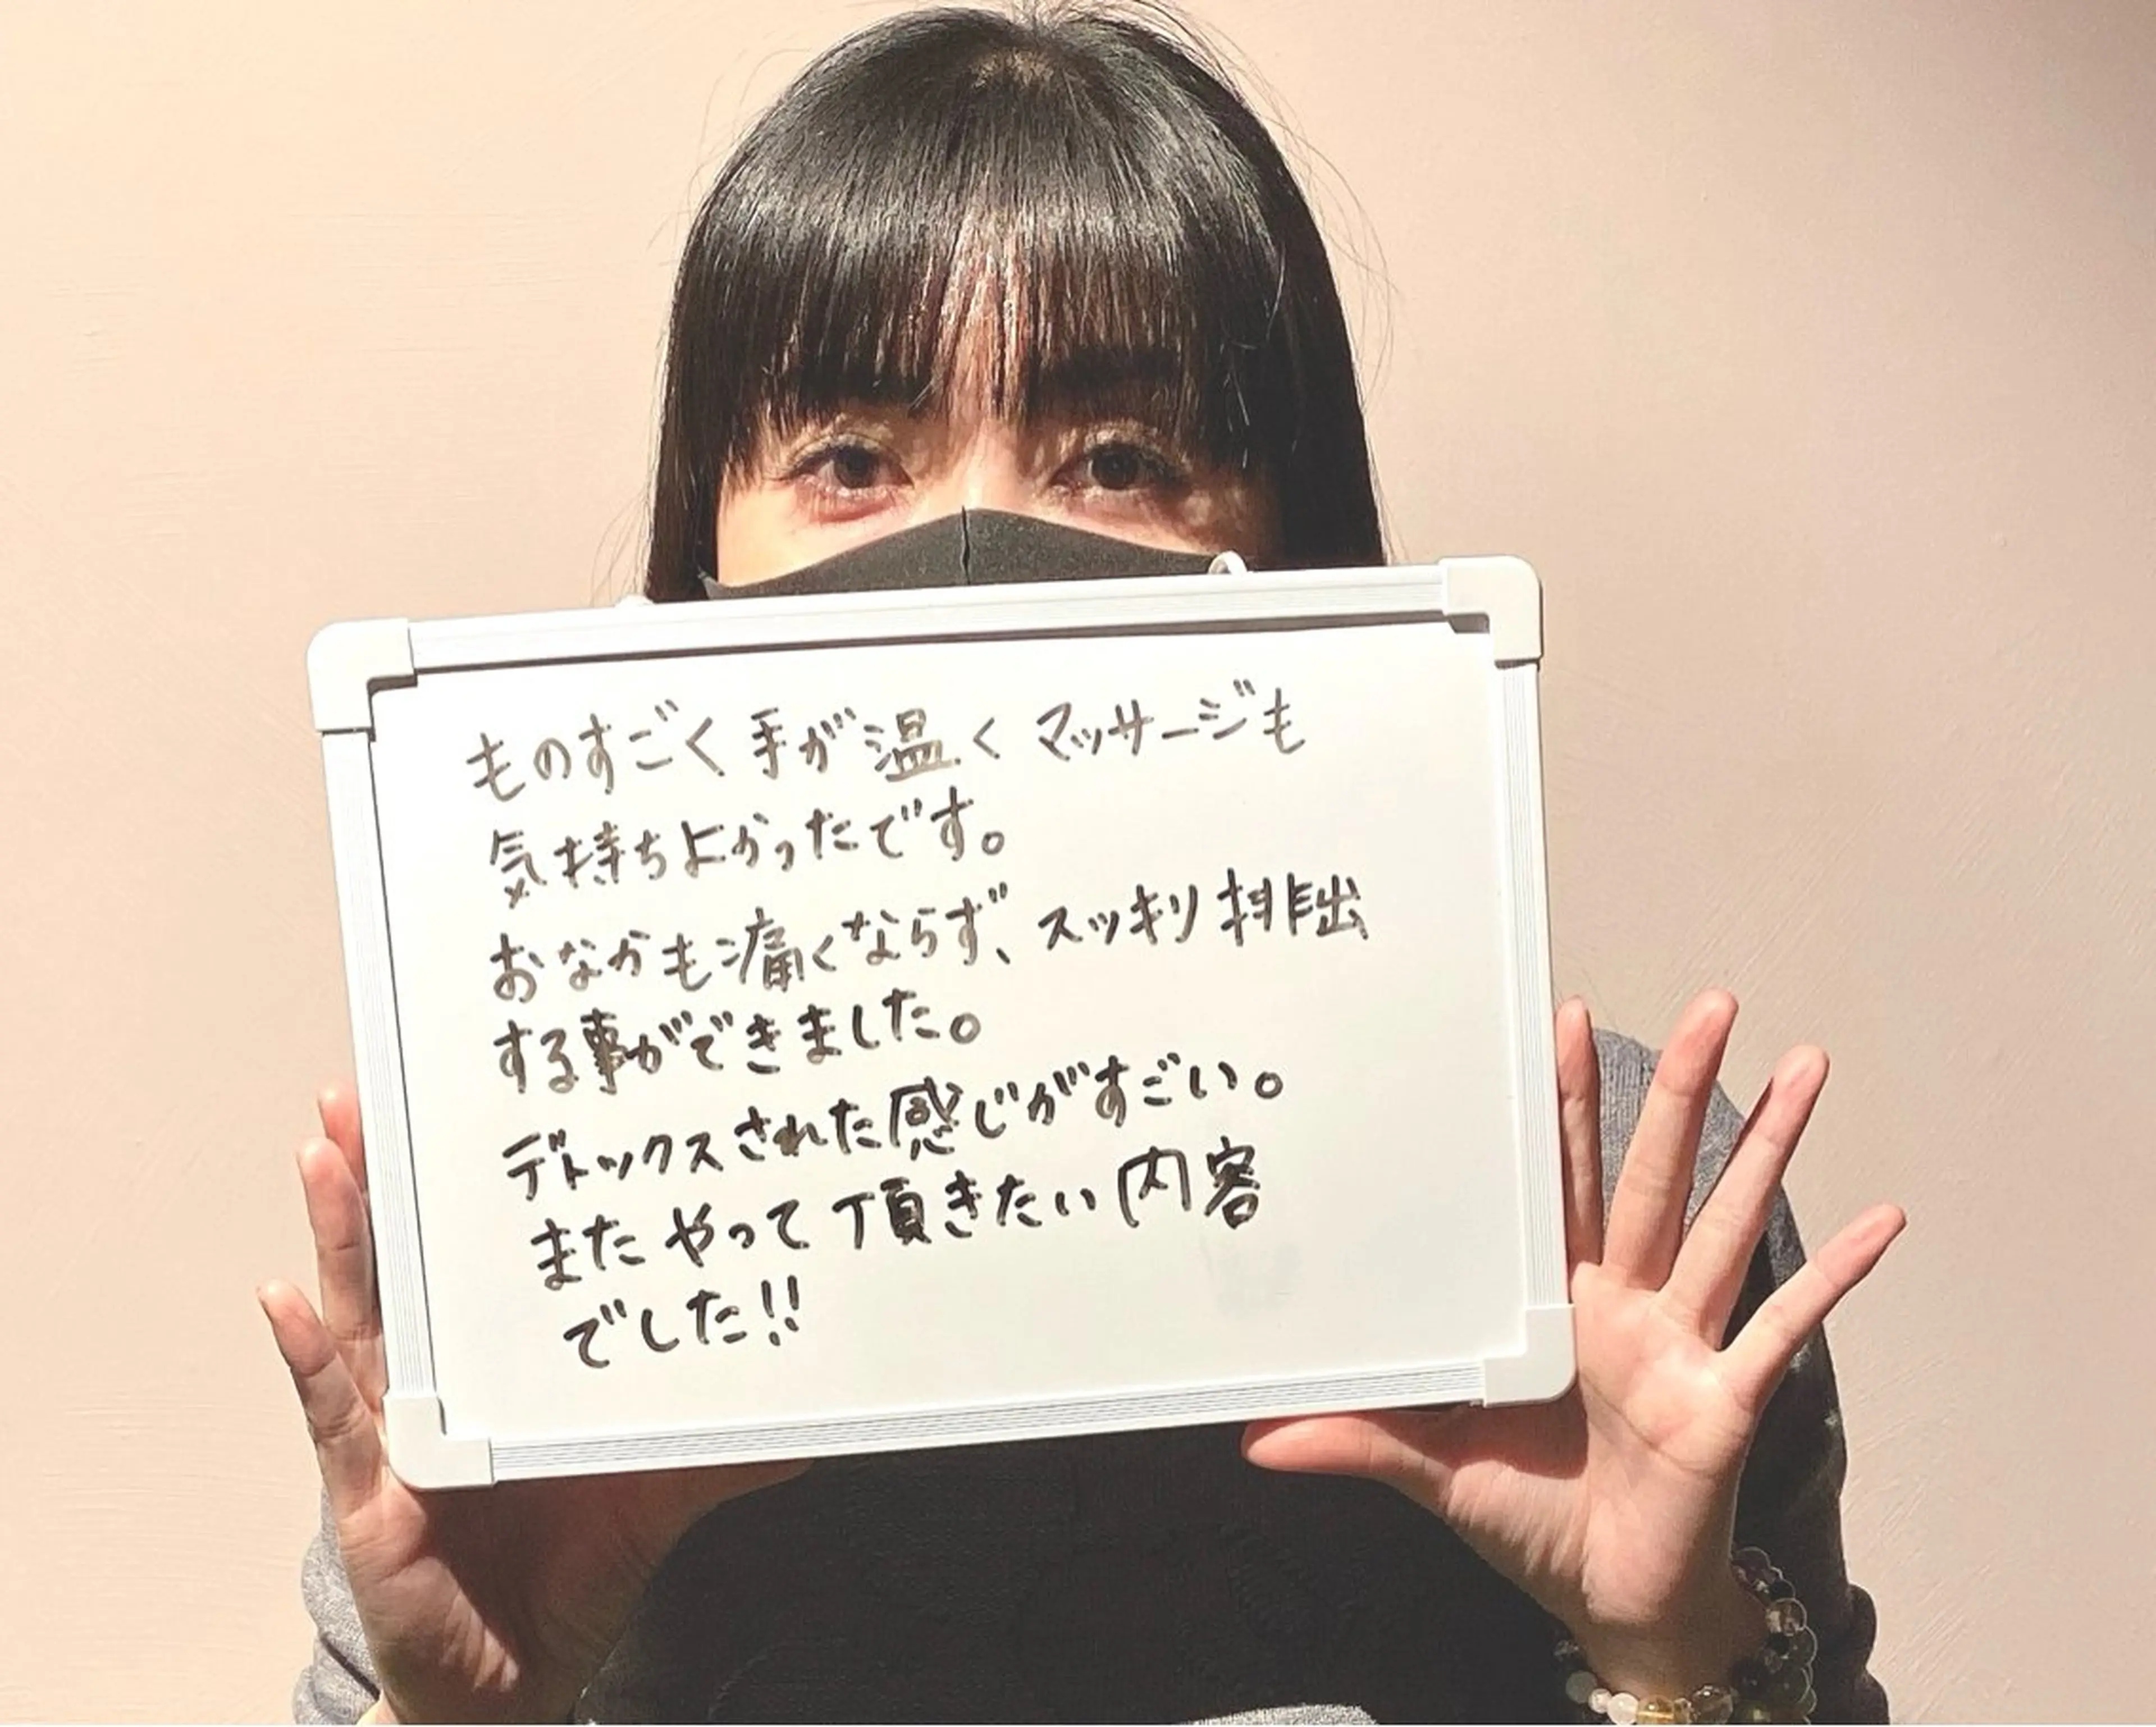 ものすごく手が温く マッサージも
気持ちよかったです。
おなかも痛くならず、スッキリ排出
する事ができました。
デトックスされた感じがすごい。
また やって頂きたい内容
でした!!